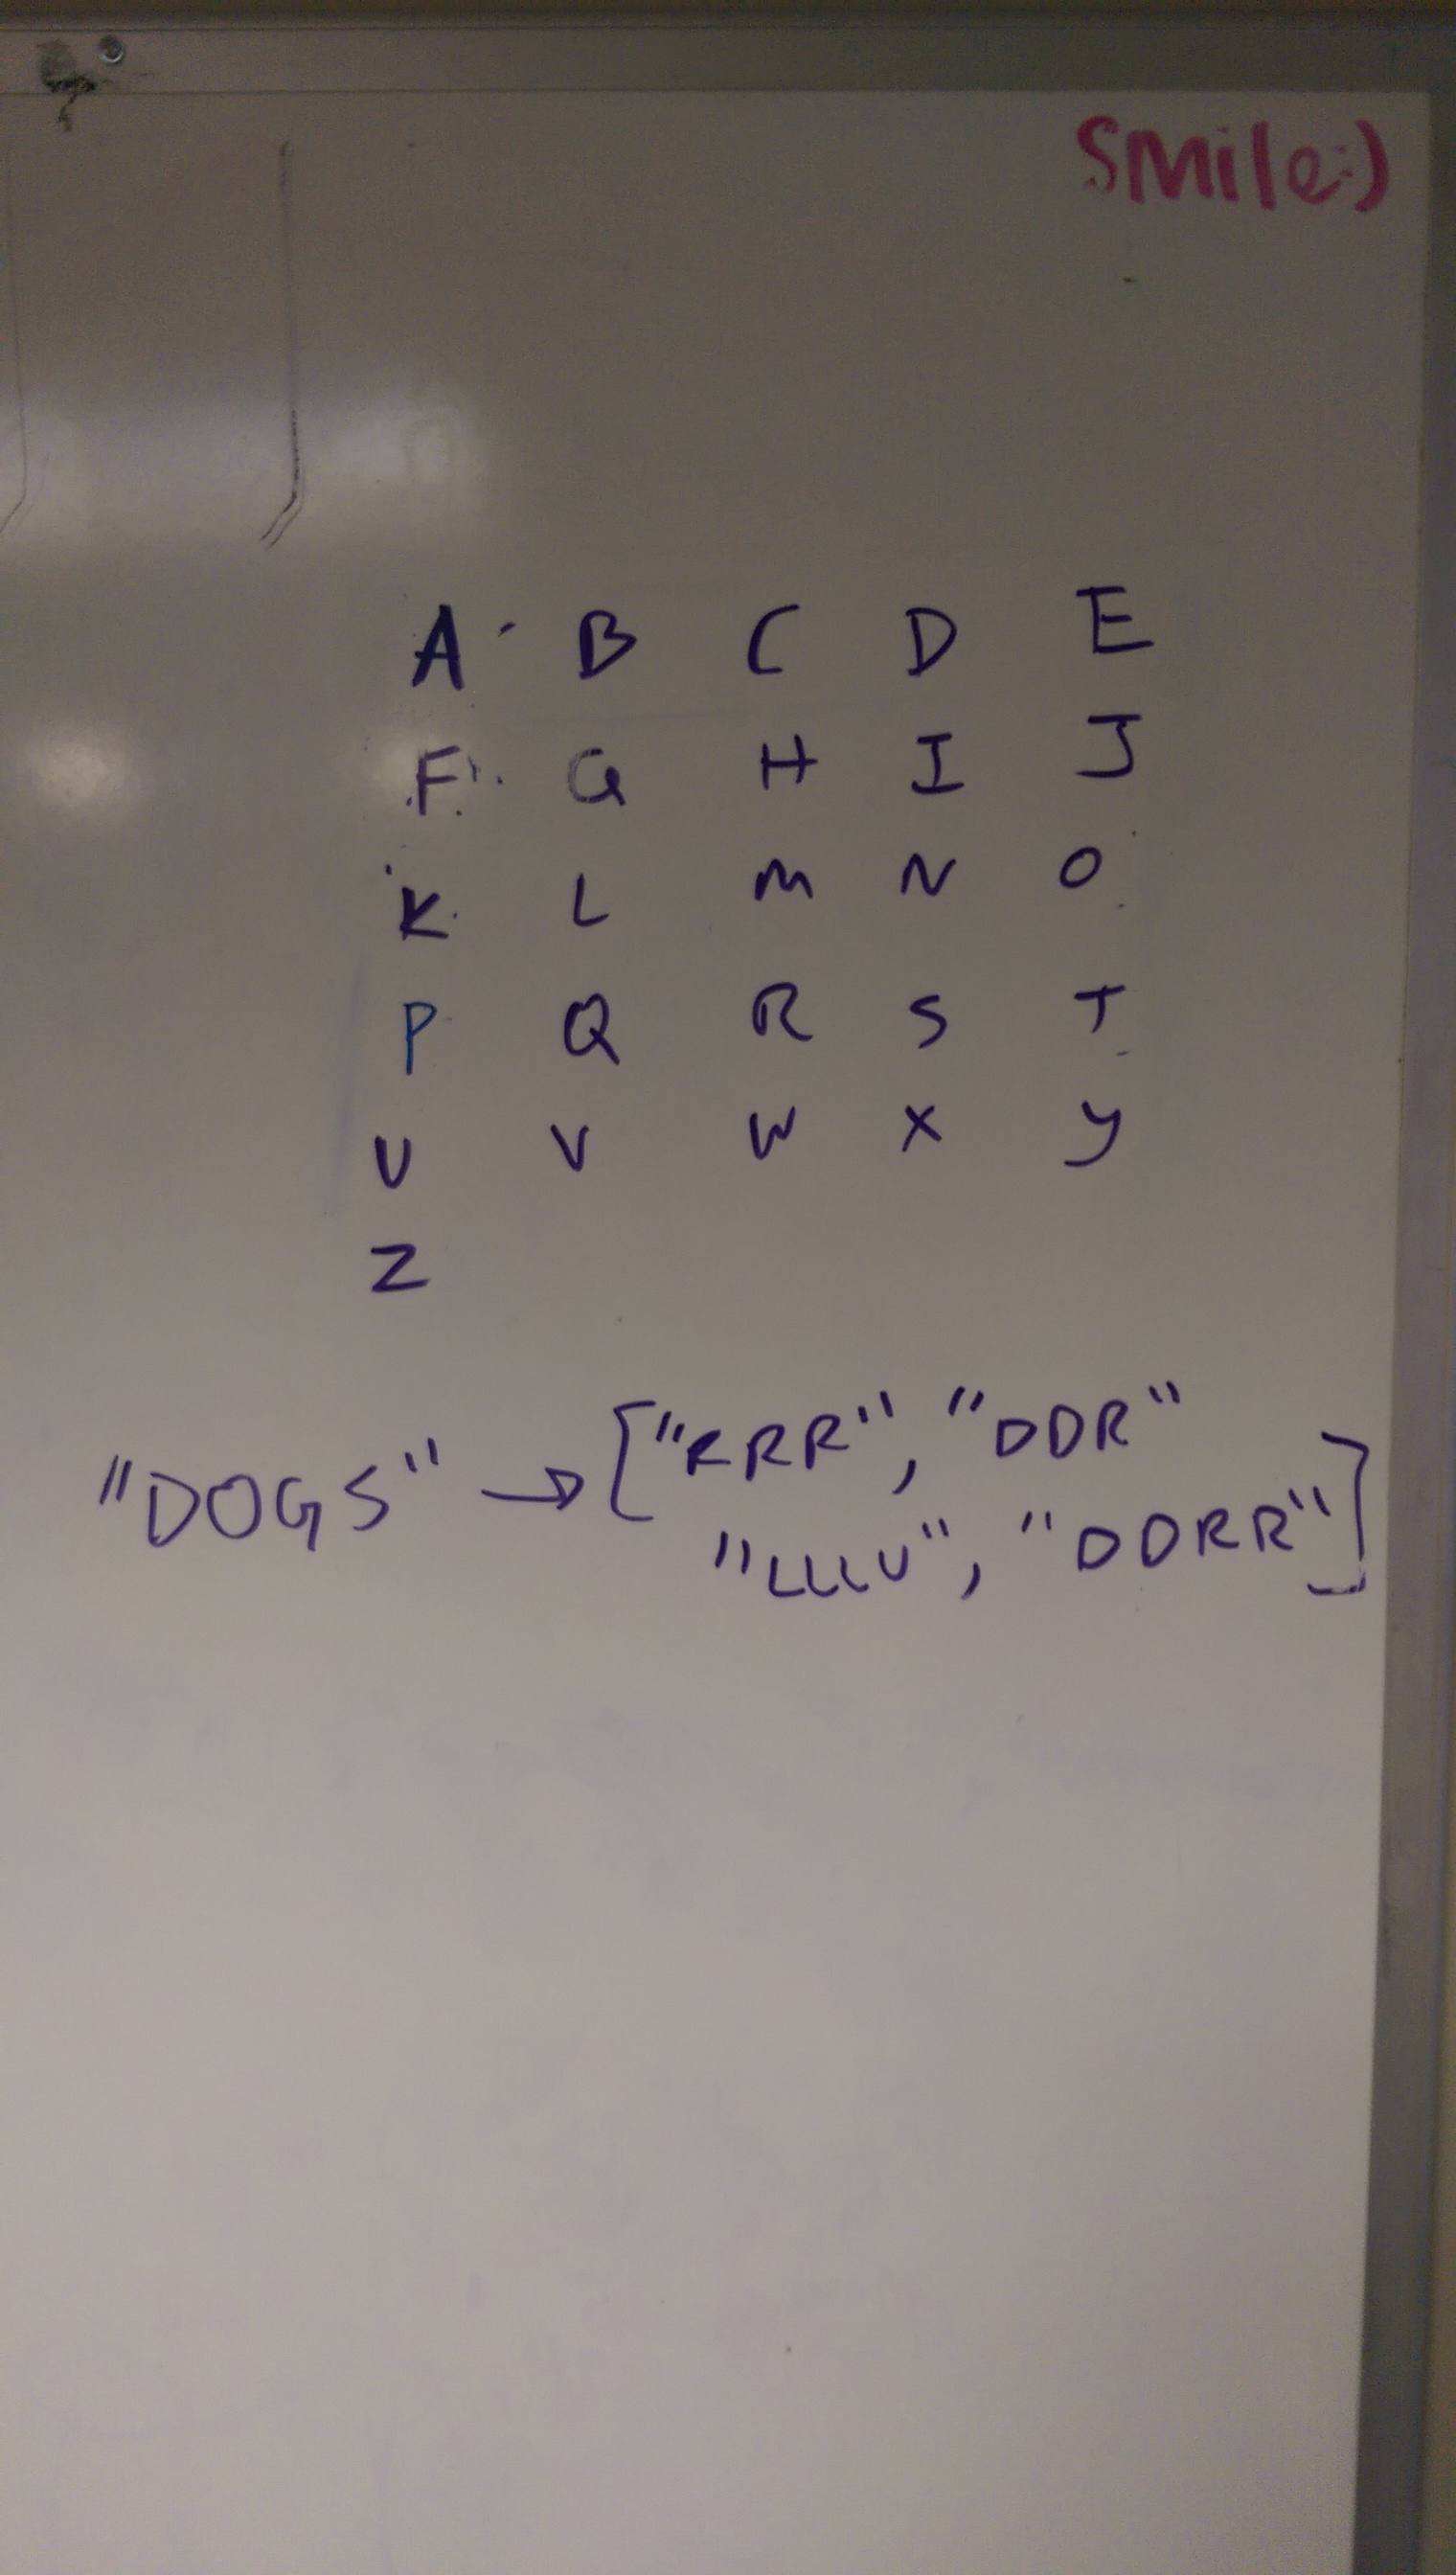 Smile:)
A B C D E
F G H I J
K L M N O
P Q R S T
U V W X Y
Z
"DOGS" → ["RRR", "DDR"
"LLLU", "DDRR"]